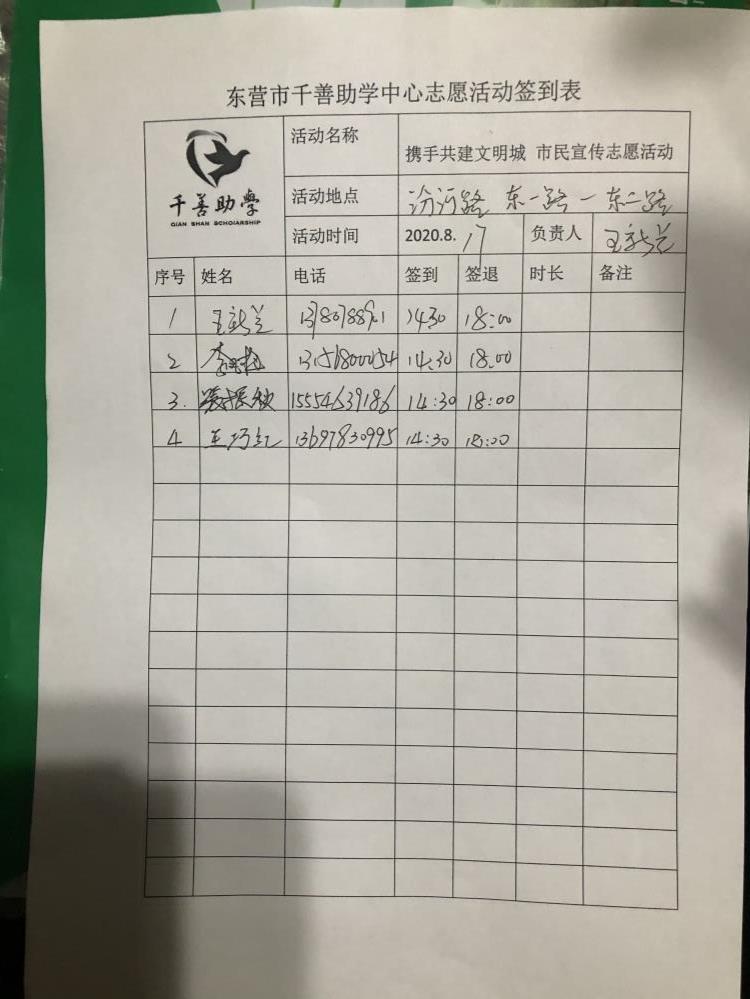 东营市千善助学中心志愿活动签到表
千善助學
QIAN SHAN SCHOIARSHIP
活动名称 携手共建文明城 市民宣传志愿活动
活动地点 汾河路 东一路一东二路
活动时间 2020.8.17 负责人 王新兰
序号 姓名 电话 签到 签退 时长 备注
1 王新兰 14:30 18:00
2 13151800054 14:30 18:00
3. 15554639186 14:30 18:00
4 王巧红 13697830995 14:30 18:00